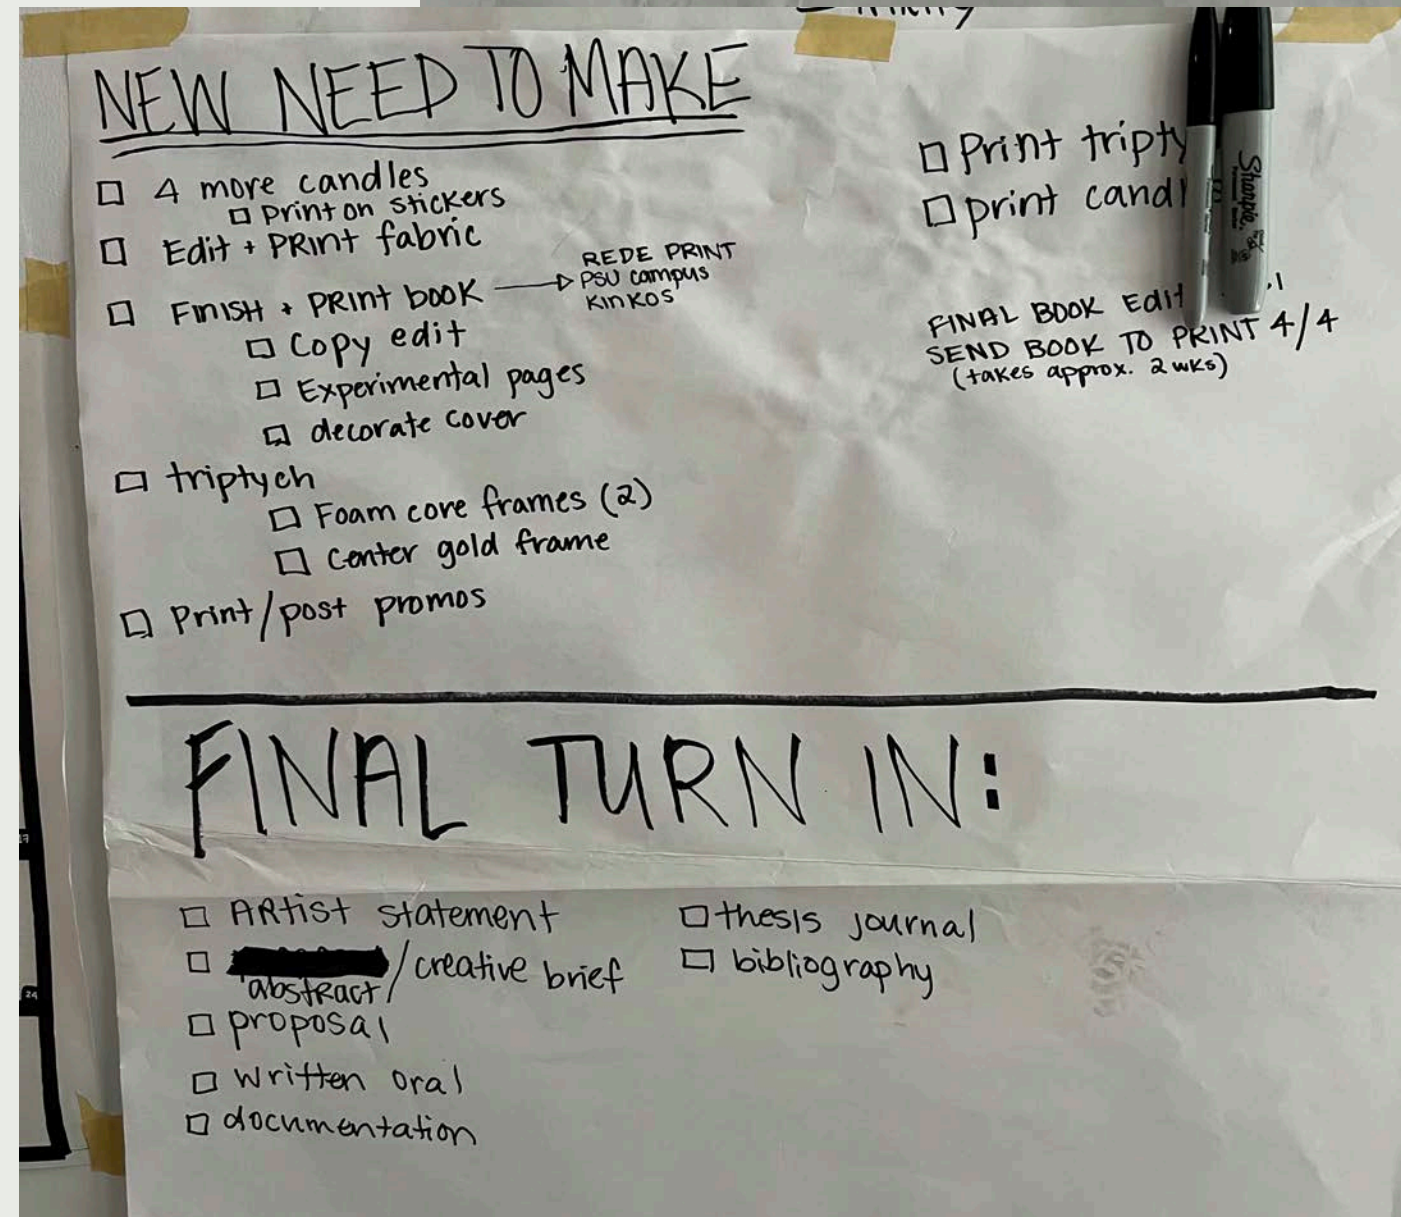 NEW NEED TO MAKE
4 more candles
print on stickers
Edit + PRINT fabric
FINISH + PRINT book
REDE PRINT
PSU campus
KINKOS
Copy edit
Experimental pages
decorate cover
triptych
Foam core frames (2)
Center gold frame
Print/post promos
Print tripty
print cand
FINAL BOOK Edit
SEND BOOK TO PRINT 4/4
(takes approx. 2 wks)
Sharpie
FINAL TURN IN:
ARtist statement
abstract/creative brief
proposal
written oral
documentation
thesis journal
bibliography
24